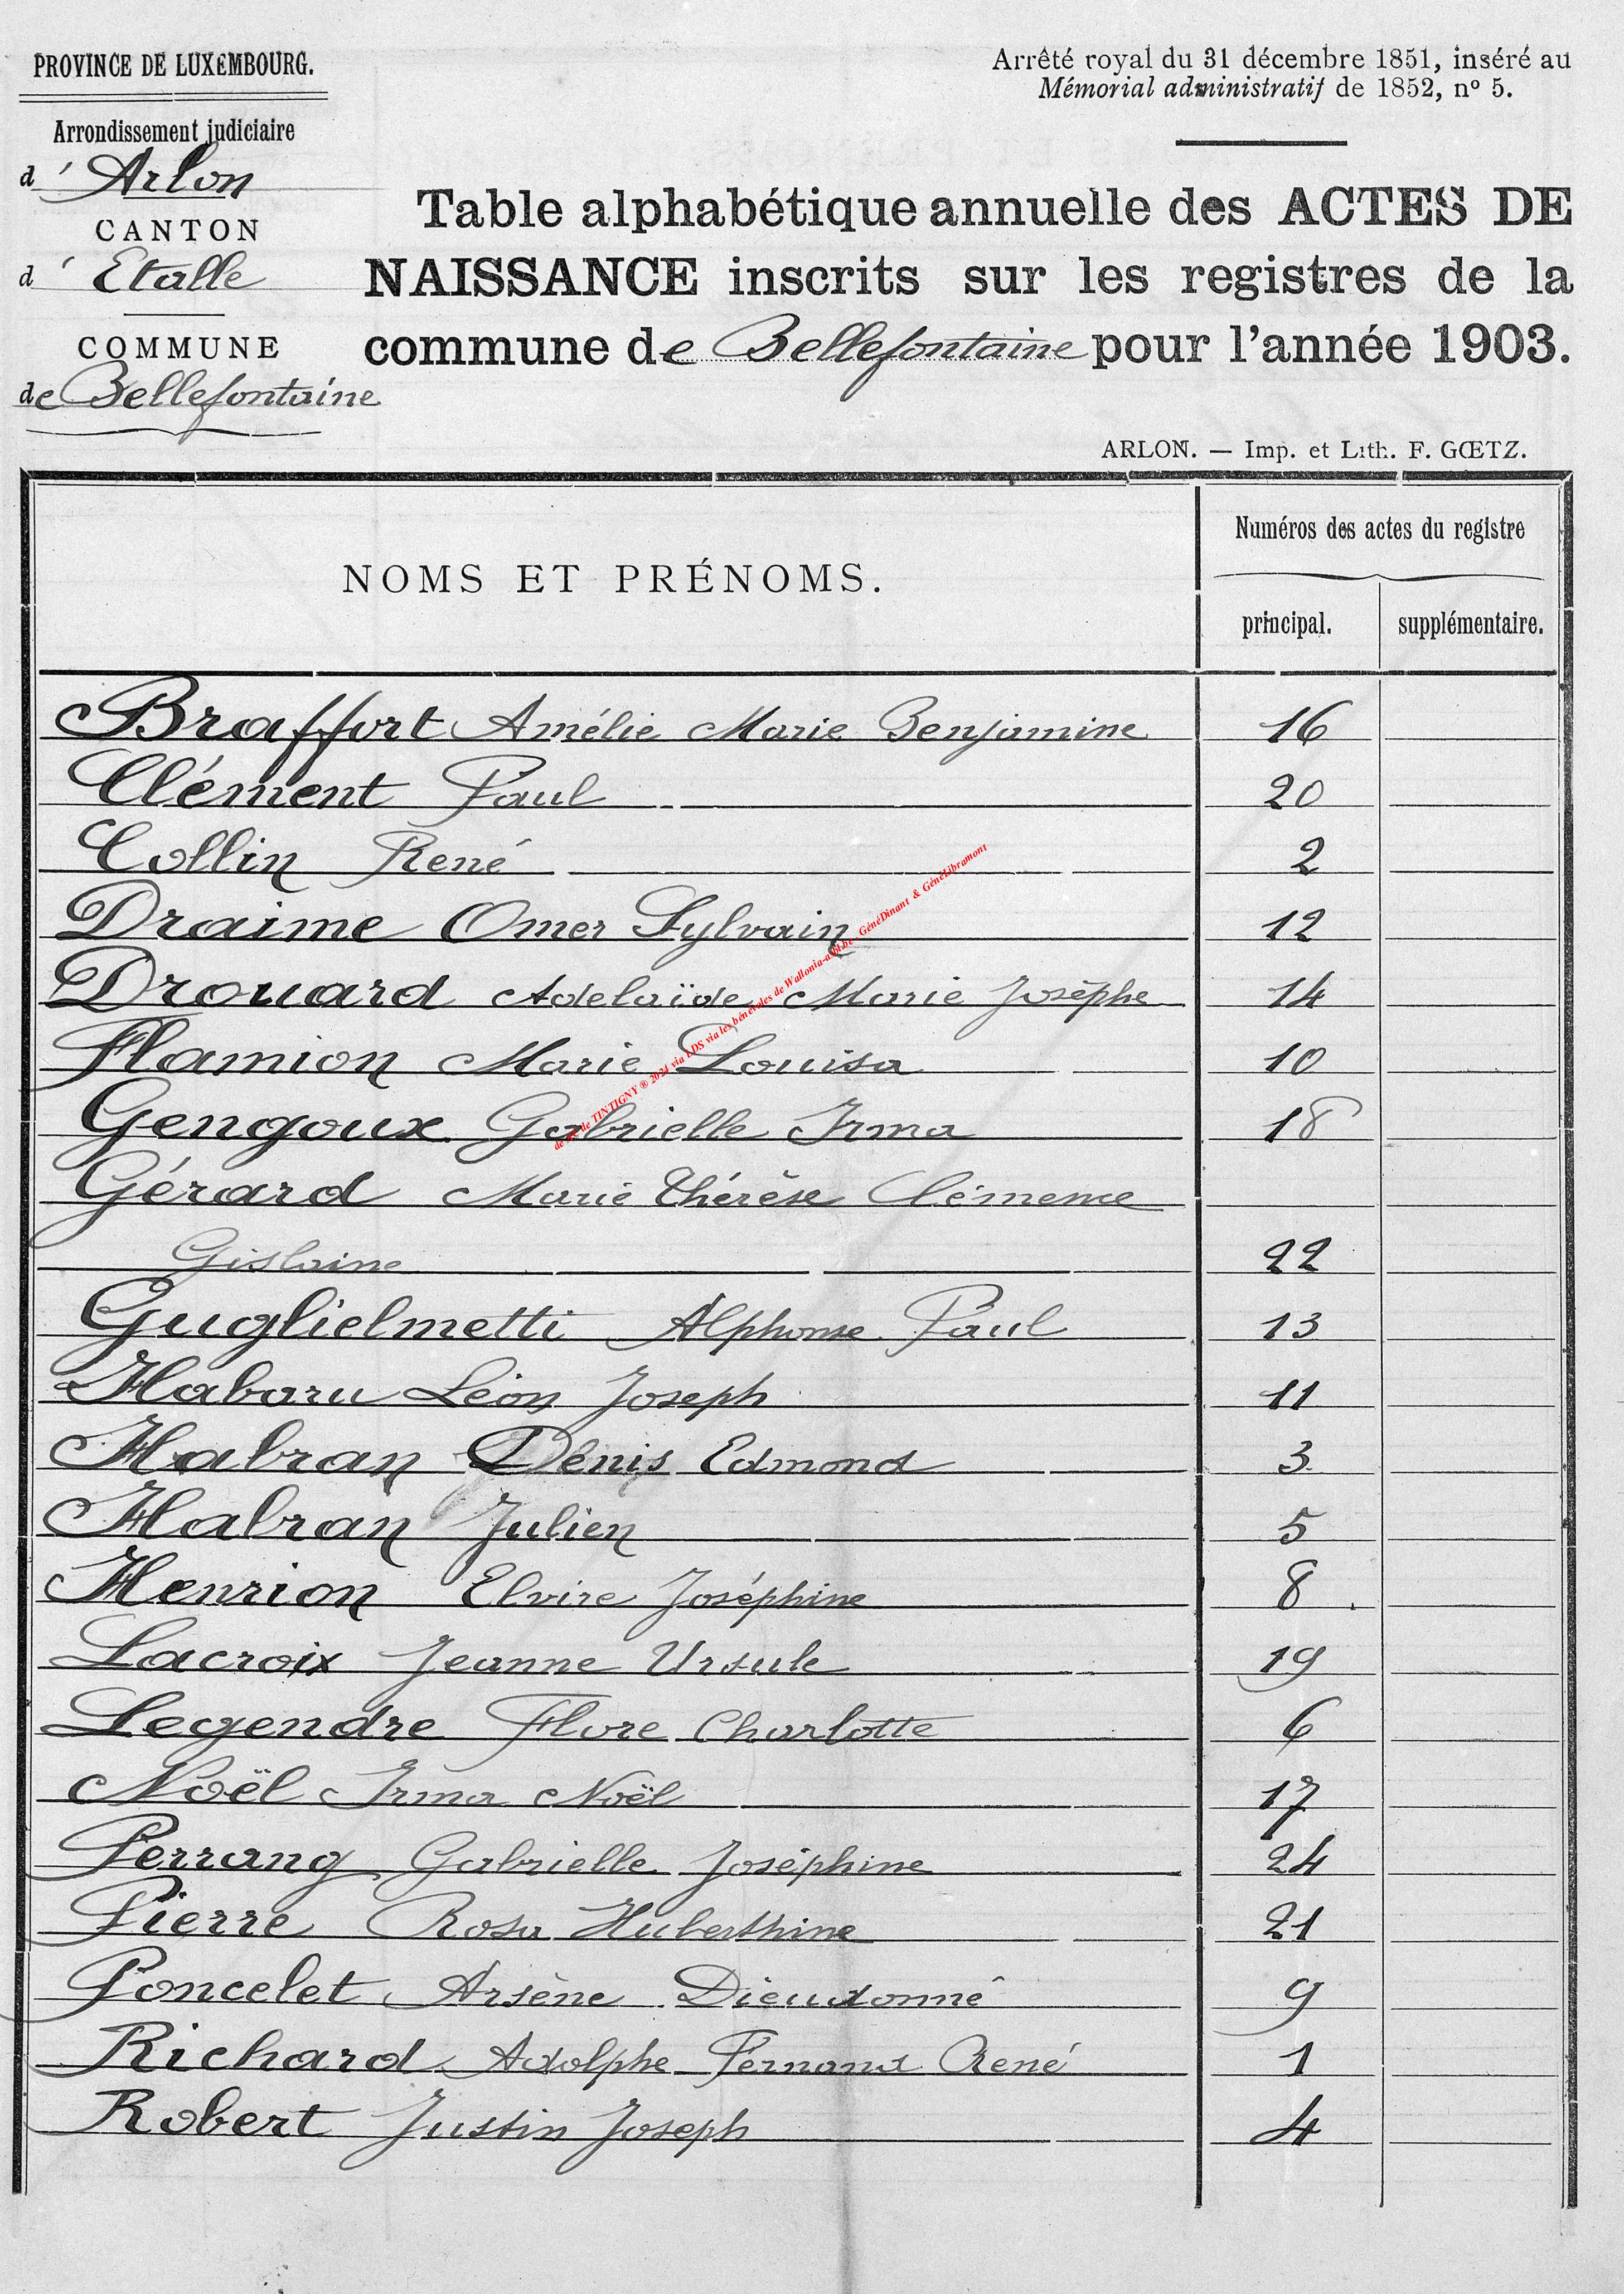 PROVINCE DE LUXEMBOURG.
Arrondissement judiciaire
d' Arlon
CANTON
d' Etalle
COMMUNE
de Bellefontaine
Arrêté royal du 31 décembre 1851, inséré au
Mémorial administratif de 1852, nº 5.
Table alphabétique annuelle des ACTES DE
NAISSANCE inscrits sur les registres de la
commune de Bellefontaine pour l'année 1903.
ARLON. — Imp. et Lith. F. GŒTZ.
NOMS ET PRÉNOMS.
Numéros des actes du registre
principal. supplémentaire.
Braffort Amélie Marie Benjamine 16
Clément Paul 20
Collin René 2
Draime Omer Sylvain 12
Drouard Adelaïde Marie Josèphe 14
Flamion Marie Louisa 10
Gengoux Gabrielle Irma 18
Gérard Marie Thérèse Clémence
Gislaine 22
Guglielmetti Alphonse Paul 13
Habaru Léon Joseph 11
Habran Denis Edmond 3
Habran Julien 5
Henrion Elvire Joséphine 8
Lacroix Jeanne Ursule 19
Legendre Flore Charlotte 6
Noël Irma Noël 17
Perrang Gabrielle Joséphine 24
Pierre Rosa Huberthine 21
Poncelet Arsène Dieudonné 9
Richard Adolphe Fernand René 1
Robert Justin Joseph 4
de TINTIGNY ® 2024 via LDS via les bénévoles de Wallonia-asbl.be - GénéDinant & GénéLibramont